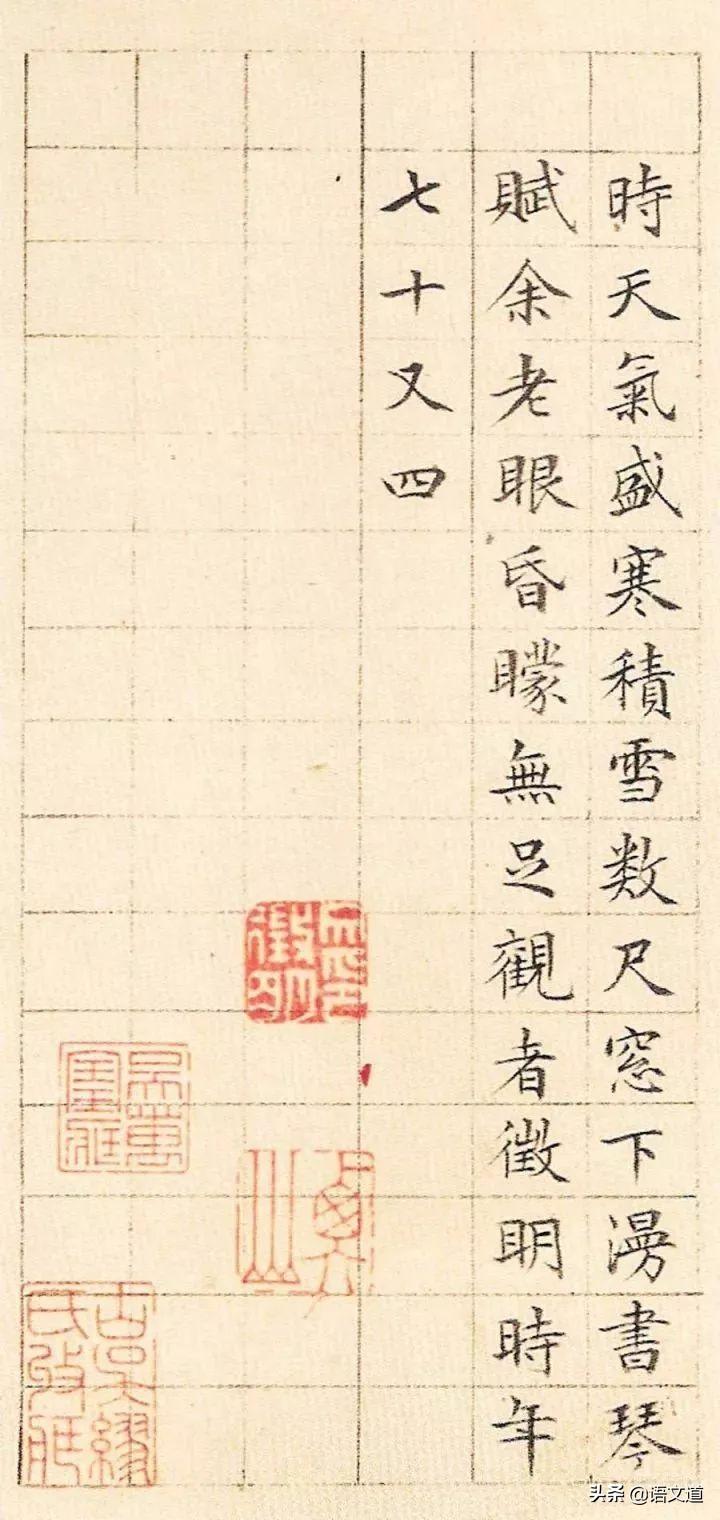 時天氣盛寒積雪数尺窓下漫書琴
賦余老眼昏矇無足觀者徵明時年
七十又四
頭条 @语文道